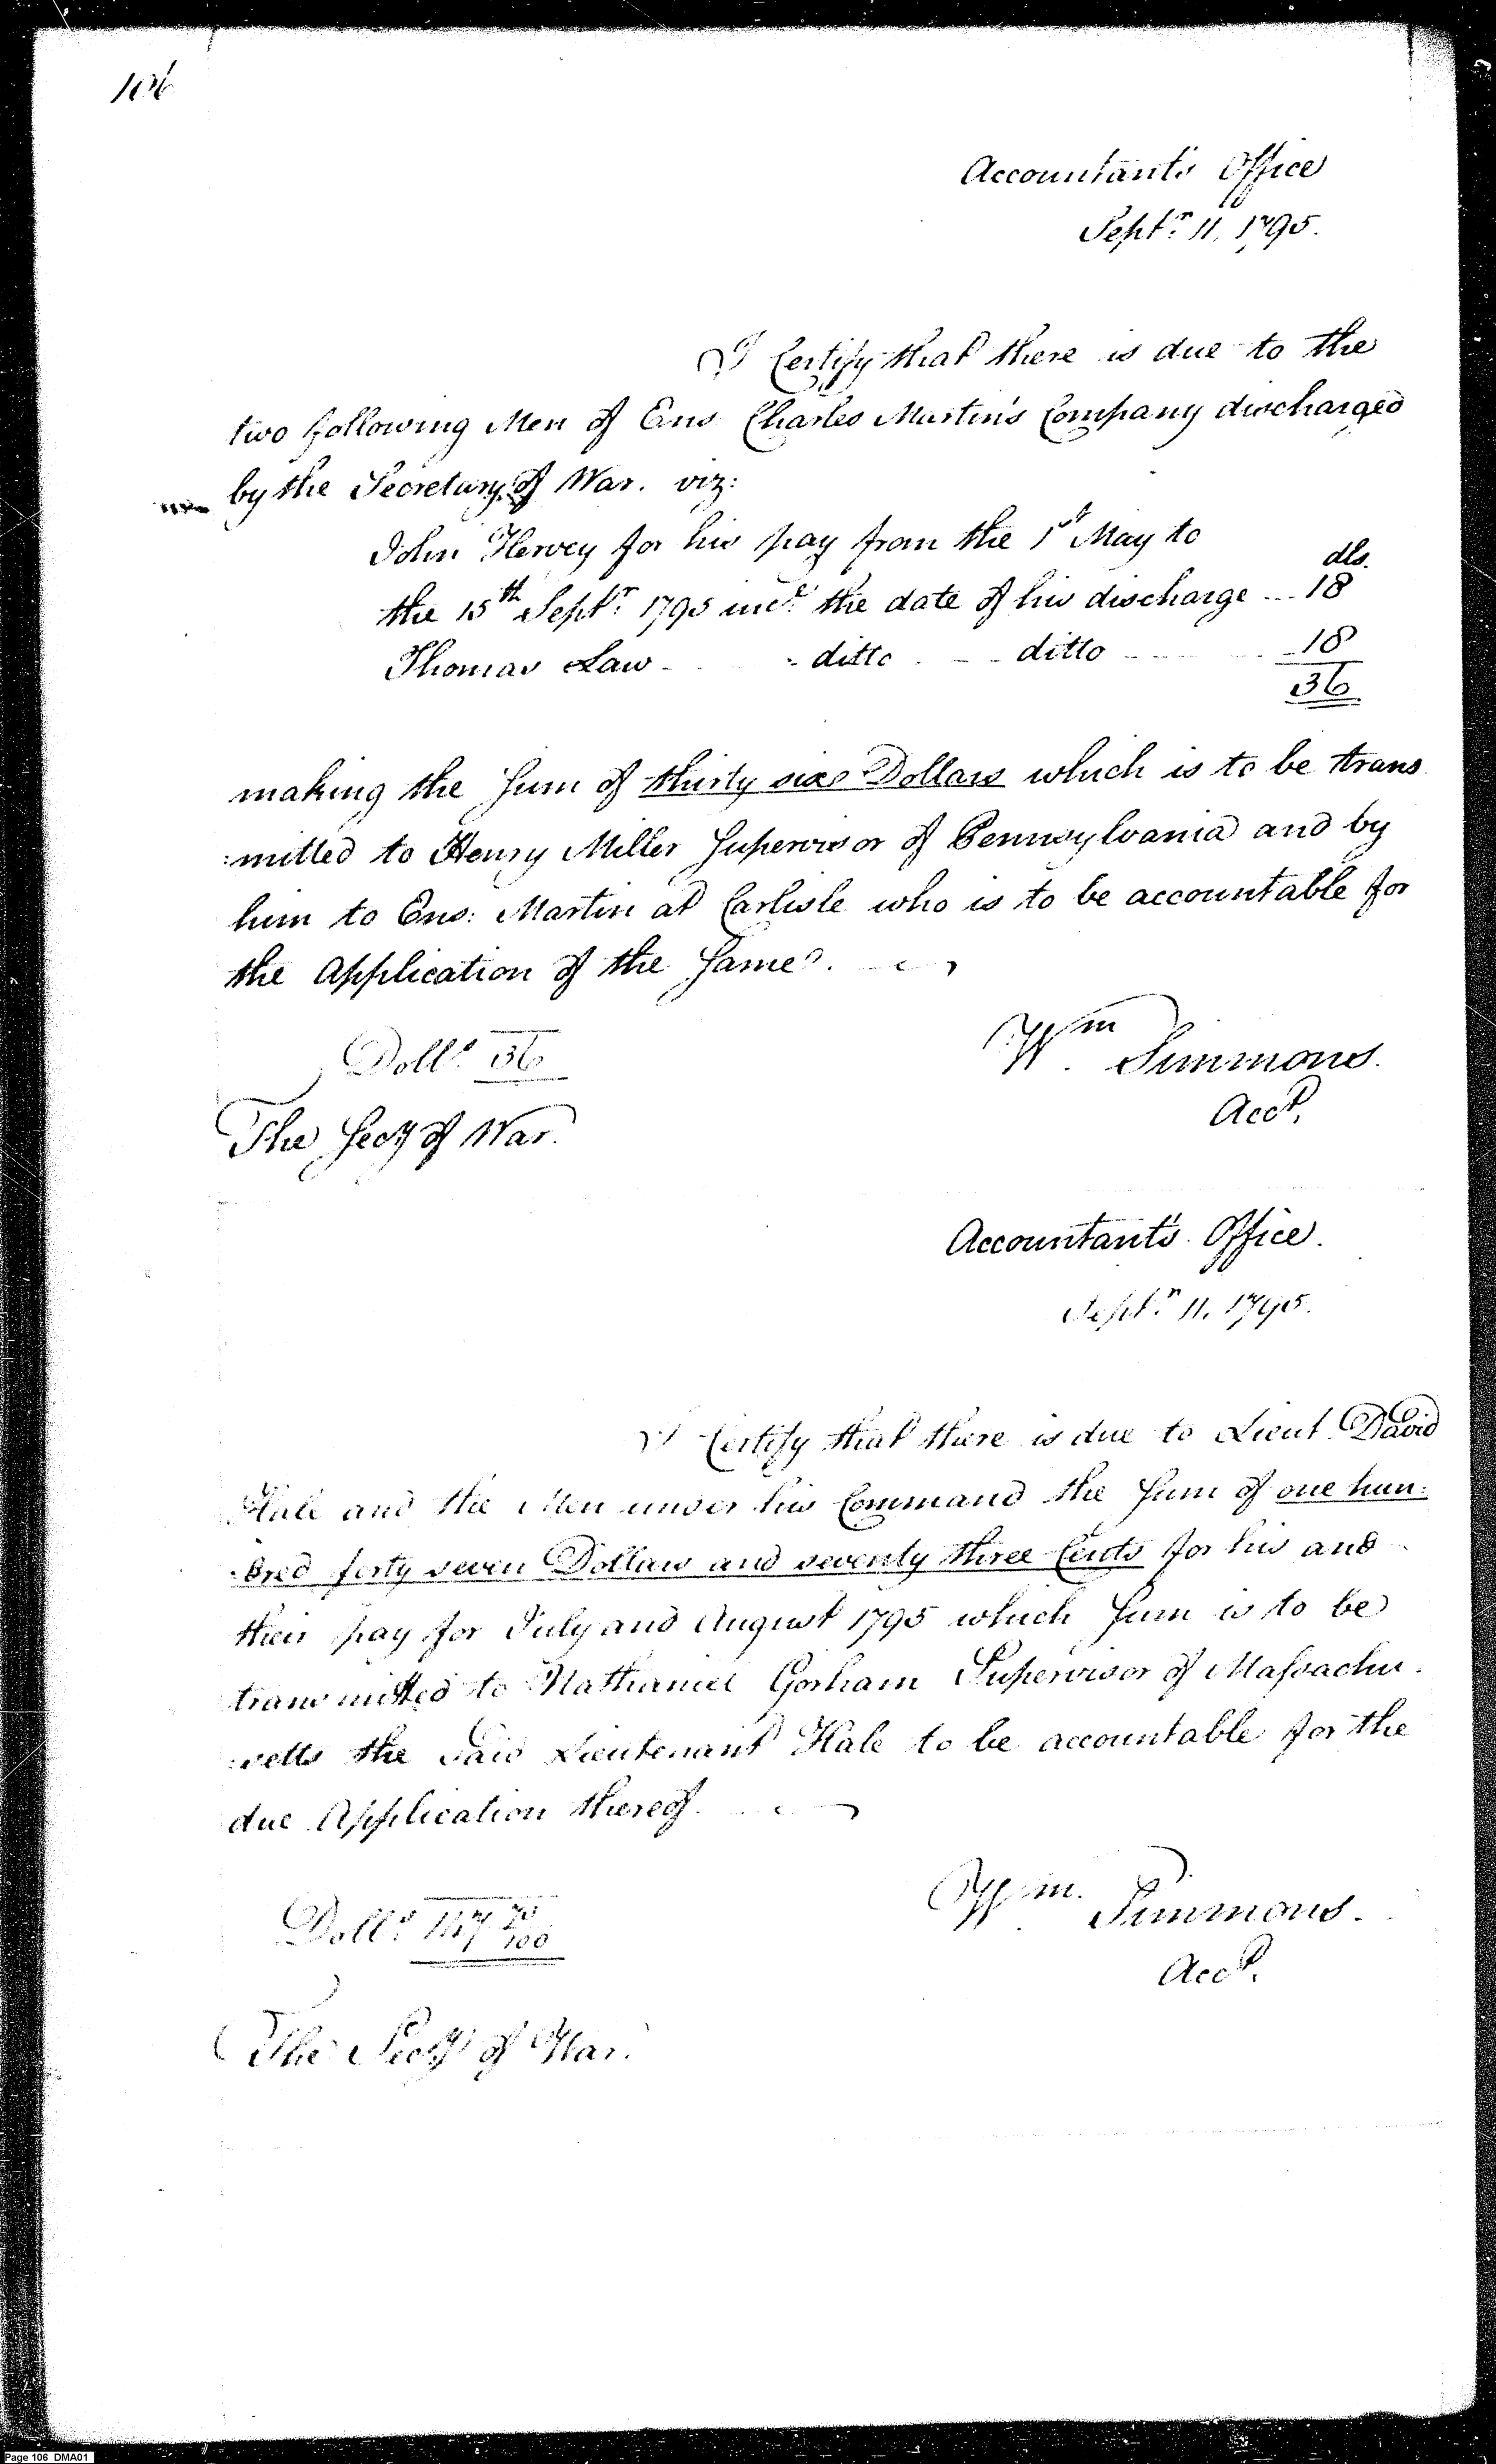 106
Accountant's Office
Septr. 11. 1795.
I Certify that there is due to the
two following Men of Ens Charles Martin's Company discharged
by the Secretary of War. viz:
John Hervey for his pay from the 1st May to
dls.
the 15th Septr. 1795 incl. the date of his discharge ... 18
Thomas Law - ditto - - ditto - - 18
36
making the Sum of thirty six Dollars which is to be trans
:mitted to Henry Miller Supervisor of Pennsylvania and by
him to Ens: Martin at Carlisle who is to be accountable for
the Application of the Same.
Dolls. 36
Wm. Simmons.
Acct.
The Secy of War.
Accountant's Office.
Septr. 11. 1795.
I Certify that there is due to Lieut. David
Hale and the Men under his Command the Sum of one hun:
:dred forty seven Dollars and seventy three Cents for his and
their pay for July and August 1795 which Sum is to be
transmitted to Nathaniel Gorham Supervisor of Massachu
:setts the said Lieutenant Hale to be accountable for the
due Application thereof.
Dolls. 147 73/100
Wm. Simmons.
Acct.
The Secy of War.
Page 106 DMA01